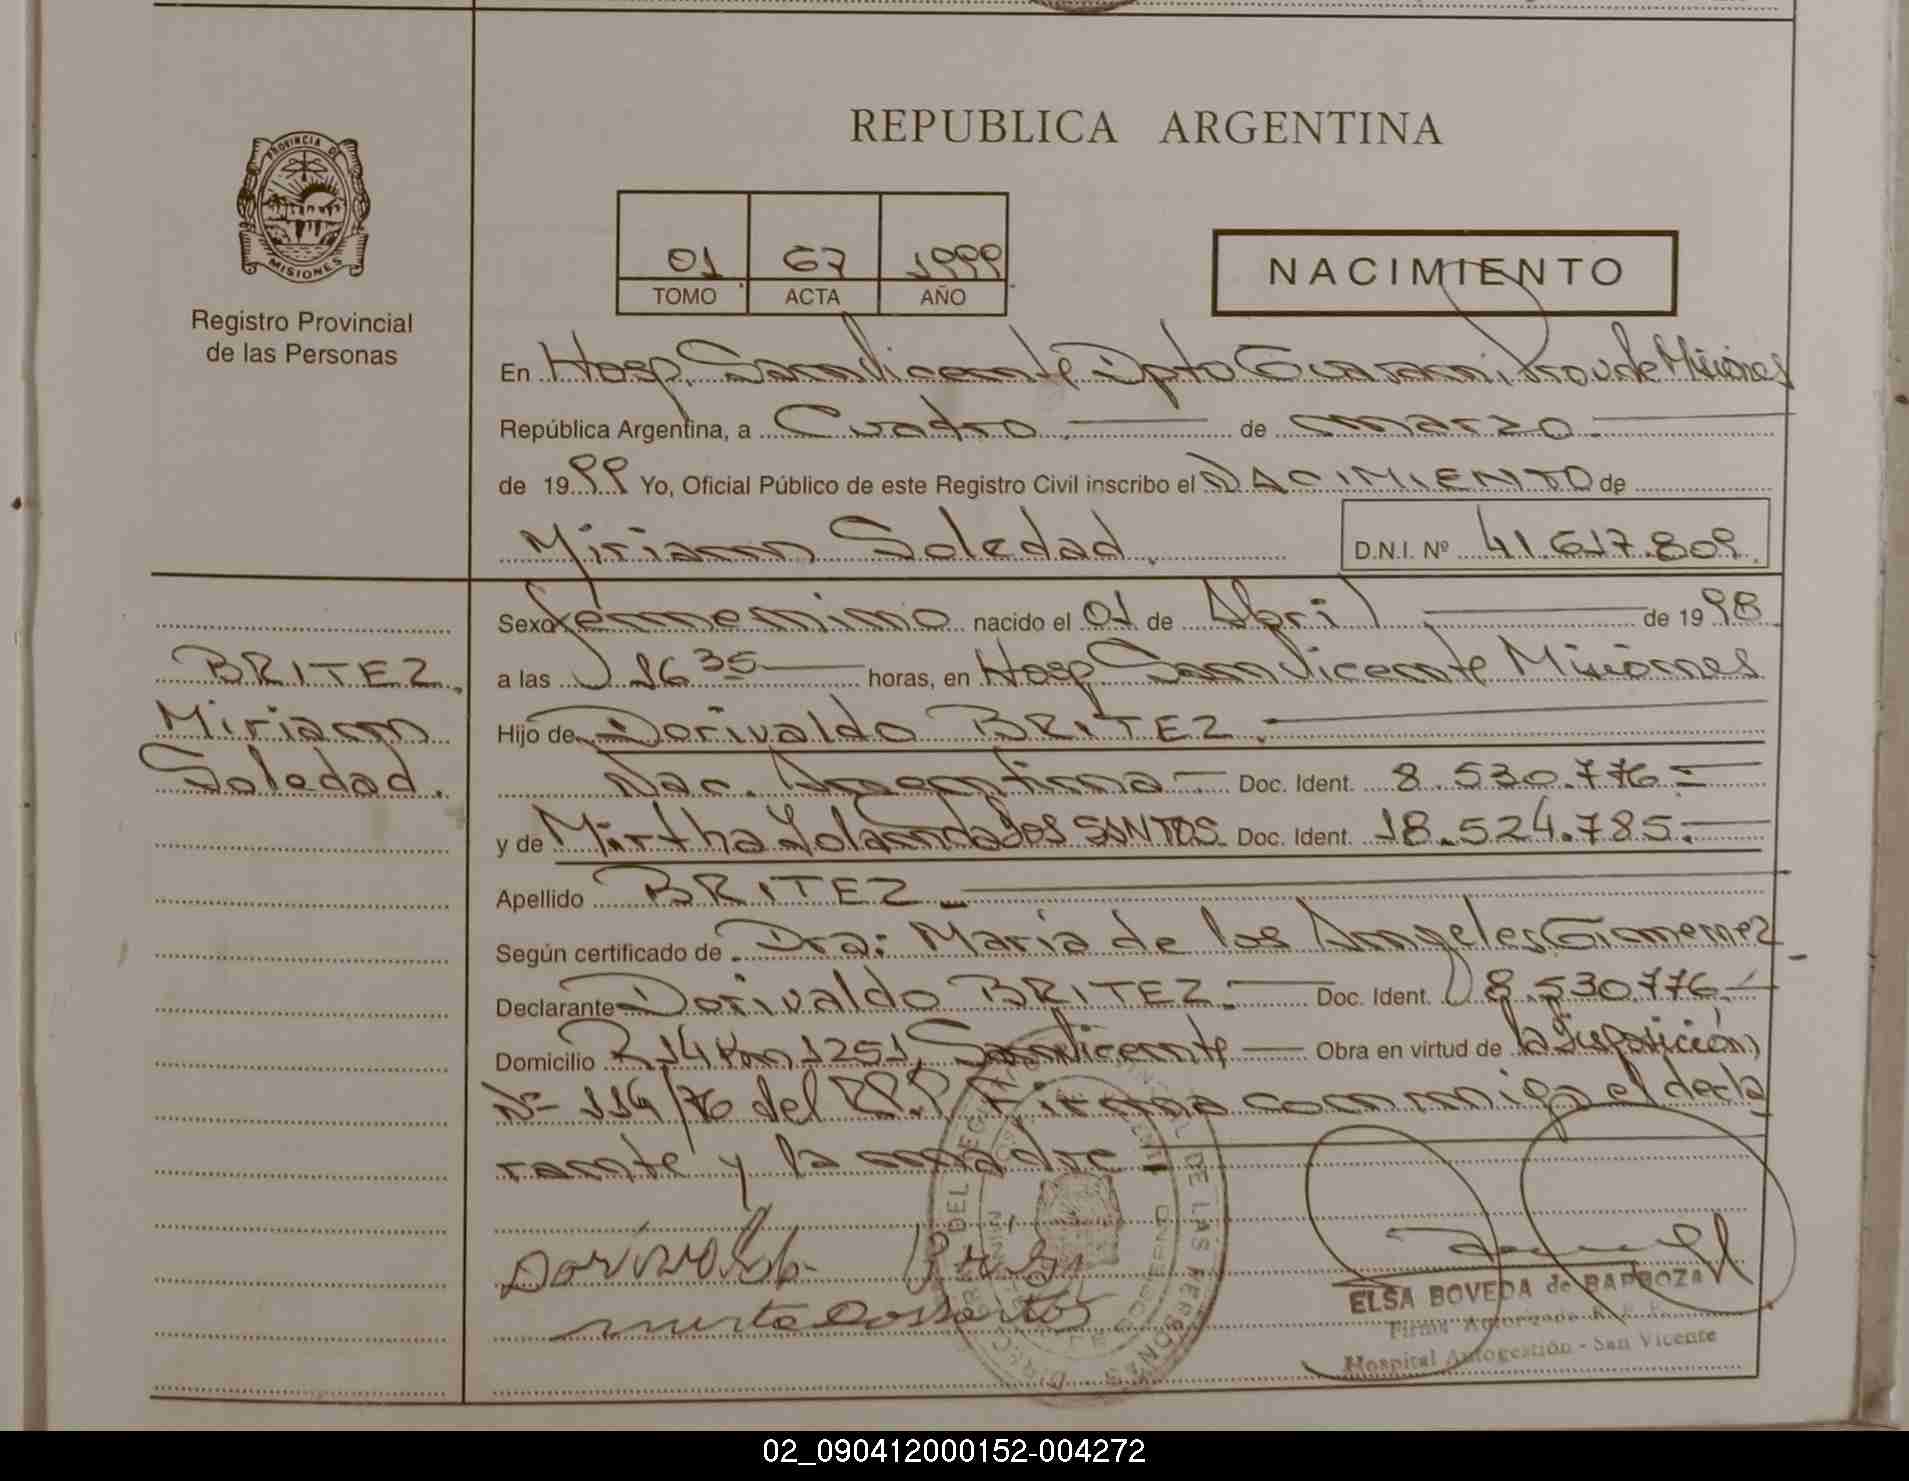 REPUBLICA ARGENTINA
PROVINCIA DE
MISIONES
Registro Provincial
de las Personas
01 67 1999
TOMO ACTA AÑO
NACIMIENTO
En Hosp. San Vicente Dpto Guarani, Prov de Misiones
República Argentina, a Cuatro de marzo
de 1999 Yo, Oficial Público de este Registro Civil inscribo el NACIMIENTO de
Miriam Soledad. D.N.I. Nº 41.617.809.
BRITEZ,
Miriam
Soledad.
Sexo femenino nacido el 01 de Abril de 1998
a las 16 35 horas, en Hosp San Vicente Misiones
Hijo de Dorivaldo BRITEZ.
Nac. Argentina Doc. Ident. 8.530.776
y de Mirtha Yolanda dos SANTOS Doc. Ident. 18.524.785.
Apellido BRITEZ
Según certificado de Dra: Maria de los Angeles Gimenez
Declarante Dorivaldo BRITEZ. Doc. Ident. 8.530.776.
Domicilio R 14 Km 1251, San Vicente Obra en virtud de la Disposición
Nº 114/76 del R.P.P Firma conmigo el decla
rante y la madre
ELSA BOVEDA de BARBOZA
Firma Autorizada R. P. P.
Hospital Autogestión - San Vicente
02_090412000152-004272